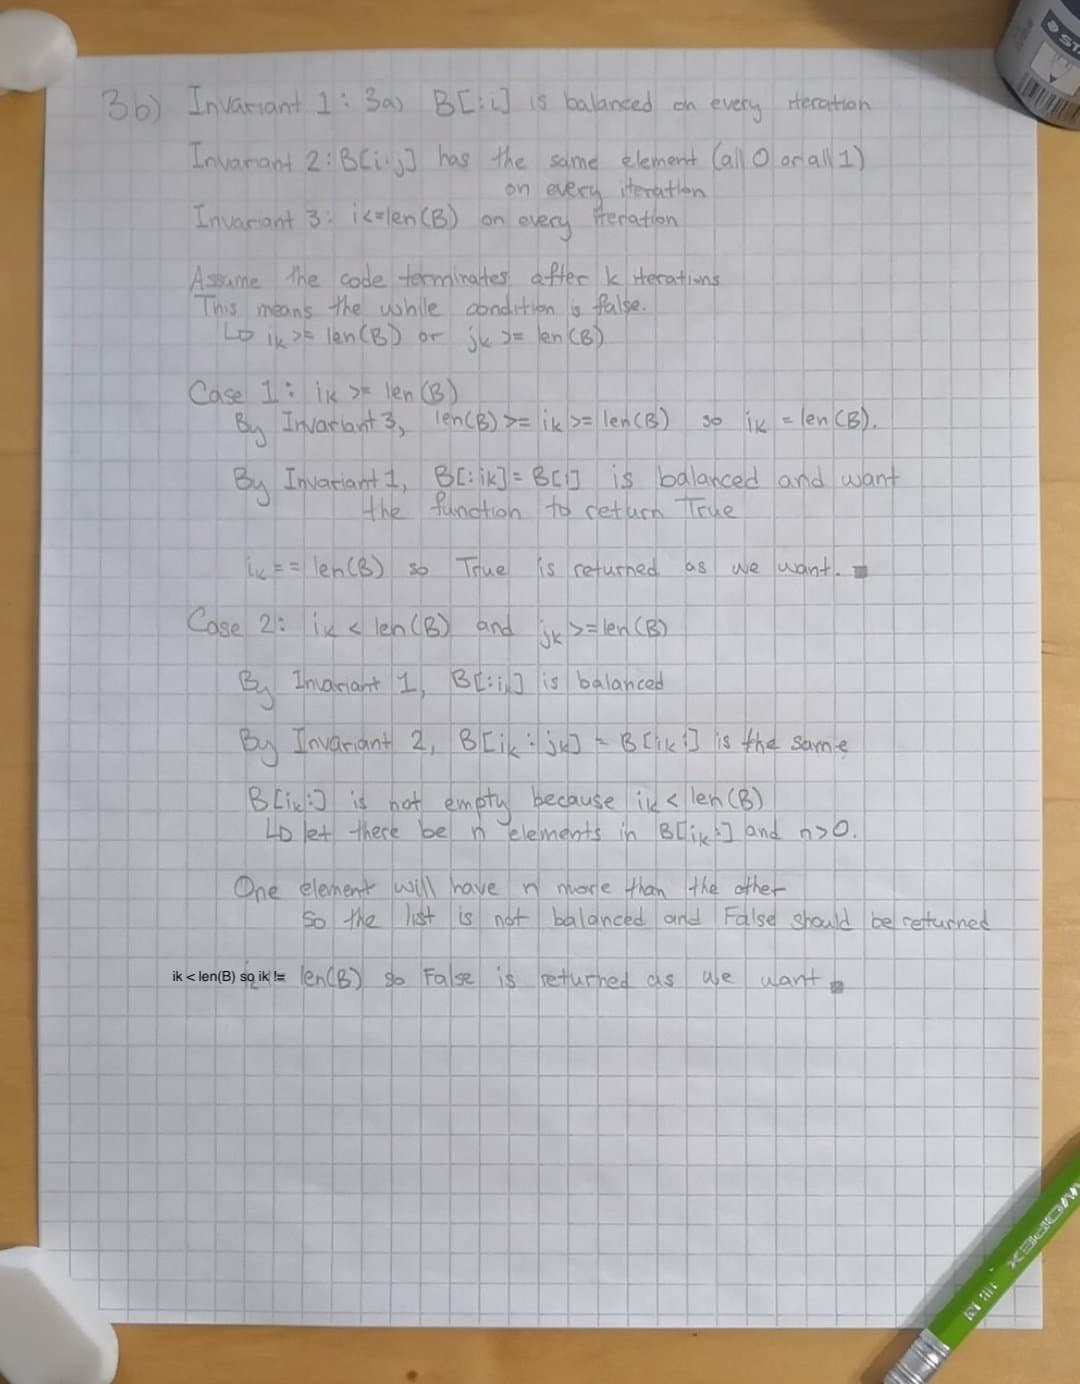 3b) Invariant 1: 3a) B[:i] is balanced on every iteration
Invariant 2: B[i:j] has the same element (all 0 or all 1)
on every iteration
Invariant 3: i<=len(B) on every iteration
Assume the code terminates after k iterations
This means the while condition is false.
↳ ik >= len(B) or jk >= len(B)
Case 1: ik >= len(B)
By Invariant 3, len(B) >= ik >= len(B) so ik = len(B).
By Invariant 1, B[:ik] = B[:] is balanced and want
the function to return True
ik == len(B) so True is returned as we want.
Case 2: ik < len(B) and jk >= len(B)
By Invariant 1, B[:ik] is balanced
By Invariant 2, B[ik:jk] = B[ik:] is the same
B[ik:] is not empty because ik < len(B)
↳ let there be n elements in B[ik:] and n>0.
One element will have n more than the other
so the list is not balanced and False should be returned
ik < len(B) so ik != len(B) so False is returned as we want